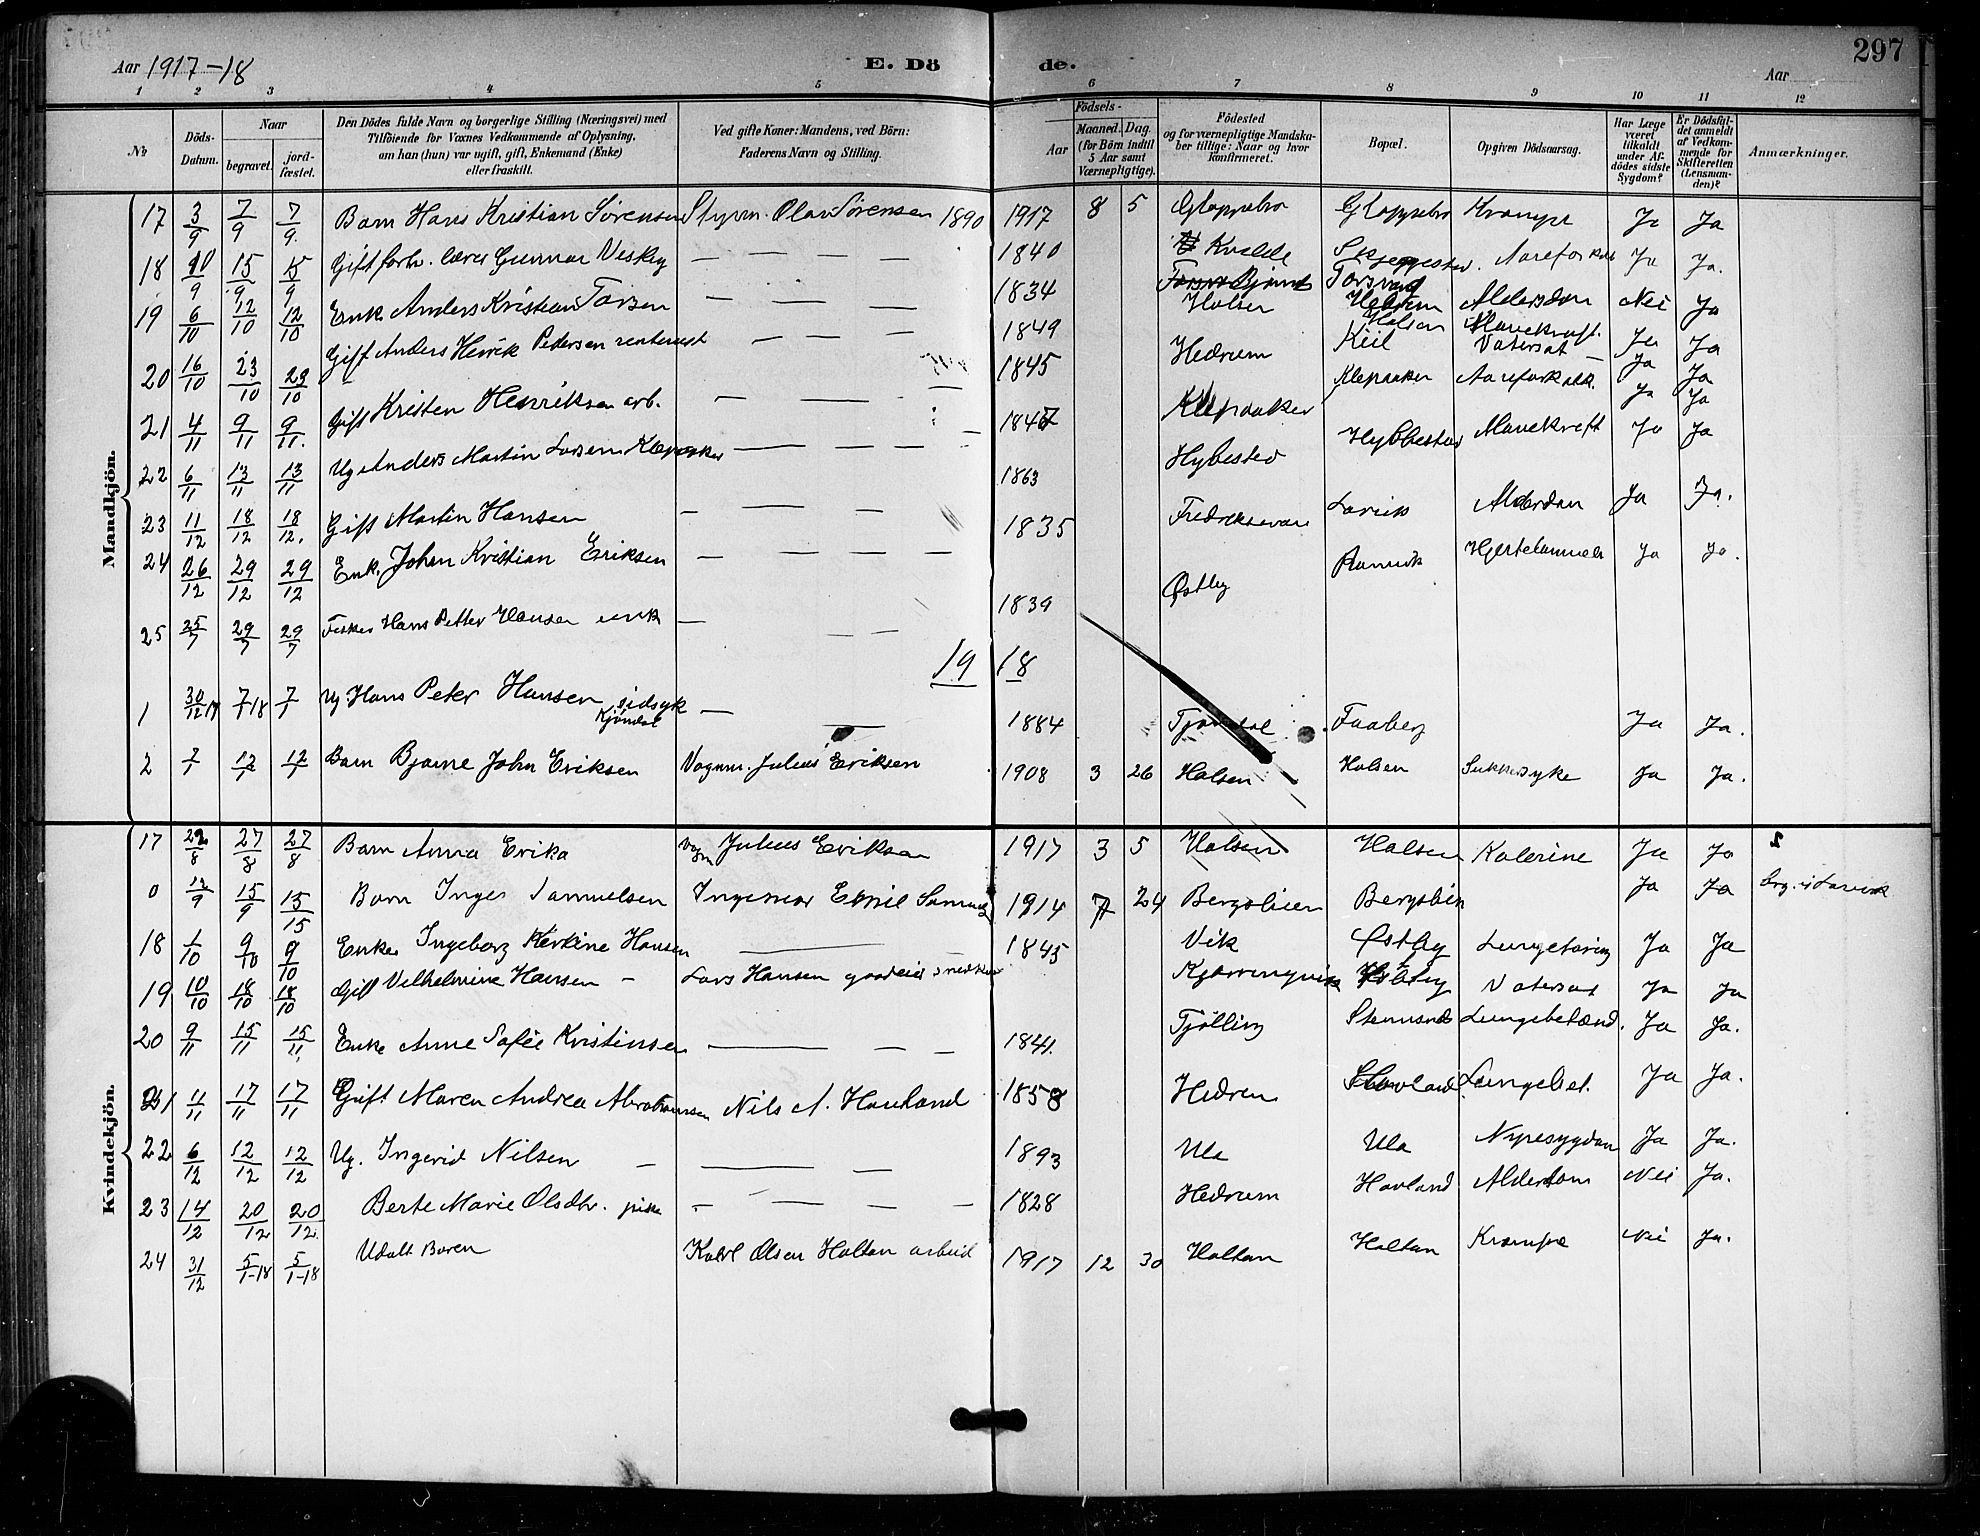 297
Aar 1917-18 E. Dö de. Aar
1 2 3 4 5 6 7 8 9 10 11 12
No. Döds-Datum. Naar begravet. jord-fæstet. Den Dödes fulde Navn og borgerlige Stilling (Næringsvei) med Tilföiende for Voxnes Vedkommende af Oplysning, om han (hun) var ugift, gift, Enkemand (Enke) eller fraskilt. Ved gifte Koner: Mandens, ved Börn: Faderens Navn og Stilling. Födsels- Aar Maaned. Dag. (for Börn indtil 5 Aar samt Værnepligtige). Födested og for værnepligtige Mandska-ber tillige: Naar og hvor konfirmeret. Bopæl. Opgiven Dödsaarsag. Har Læge været tilkaldt under Af-dödes sidste Sygdom? Er Dödsfal-det anmeldt af Vedkom-mende for Skifteretten (Lensman-den)? Anmærkninger.
Mandkjön.
17 3/9 7/9 7/9. Barn Hans Kristian Sörensen Styrm. Olav Sörensen 1890 1917 8 5 Gloppebro Gloppebro Krampe Ja Ja
18 10/9 15/9 15/9 Gift forh. lærer Gunnar Vesky 1840 Kvelde Aareforkalk Ja Ja.
19 6/10 12/10 12/10 Enk Anders Kristian Torsen 1834 Halsen Torsrud Hedrum Alderdom Nei Ja
20 16/10 23/10 23/10 Gift Anders Henrik Pedersen rentenist 1849 Halsen Mavekræft. Ja Ja
1845 Hedrum Keil Vatersot Ja Ja
21 4/11 9/11 9/11. Gift Kristen Henriksen arb. 1847 Klepaaker Klepaaker Aareforkalk. Ja Ja
22 6/11 13/11 13/11 Ug Anders Martin Larsen Klepaaker 1863 Hybbestad Mavekreft Ja Ja
23 11/12 18/12 18/12. Gift Martin Hansen 1835 Fredriksvær Larvik Alderdom Ja Ja.
24 26/12 29/12 29/12 Enk. Johan Kristian Eriksen 1839 Østby Hjertelammelse Ja Ja.
25 25/7 29/7 29/7 Fisker Hans Petter Hansen enk
1918
1 30/12 17 7/1 18 7/1 Ug. Hans Peter Hansen sidsyk Kjöndal 1884 Faaberg Ja Ja.
2 7/1 12/1 12/1 Barn Bjarne John Eriksen Vognm. Julius Eriksen 1908 3 26 Halsen Halsen Sukkersyke Ja Ja.
Kvindekjön.
17 22/8 27/8 27/8 Barn Anna Erika Vogn Julius Eriksen 1917 3 5 Halsen Halsen Kolerine Ja Ja
0 12/9 15/9 15/15 Barn Inger Samuelsen Emil Samuels 1914 7 24 Bergslien Bergslien Ja Ja beg. i Larvik
18 1/10 9/10 9/10 Enke Ingeborg Kirkine Hansen 1845 Vik Østby Lungetæring Ja Ja
19 10/10 18/10 18/10 Gift Vilhelmine Hansen Lars Hansen gaardeier snedker Kjærringvik Østby Vatersot Ja Ja
20 9/11 15/11 15/11 Enke Anne Sofie Kristinsen 1841. Tjölling Stemsrud Lungebetænd. Ja Ja.
21 11/11 17/11 17/11 Gift Maren Andrea Abrahamsen Nils A. Hauland 1858 Hedrum Hovland Lungebet. Ja Ja.
22 6/12 12/12 12/12 Ug. Ingerid Nilsen 1893 Ula Ula Nyresygdom Ja Ja.
23 14/12 20/12 20/12. Berte Marie Olsdtr. pike 1828 Hedrum Hovland Alderdom Nei Ja.
24 31/12 5/1-18 5/1-18 Udöbt Baren Karl Olsen Holtan arbeid 1917 12 30 Holtan Holtan Krampe Nei Ja.